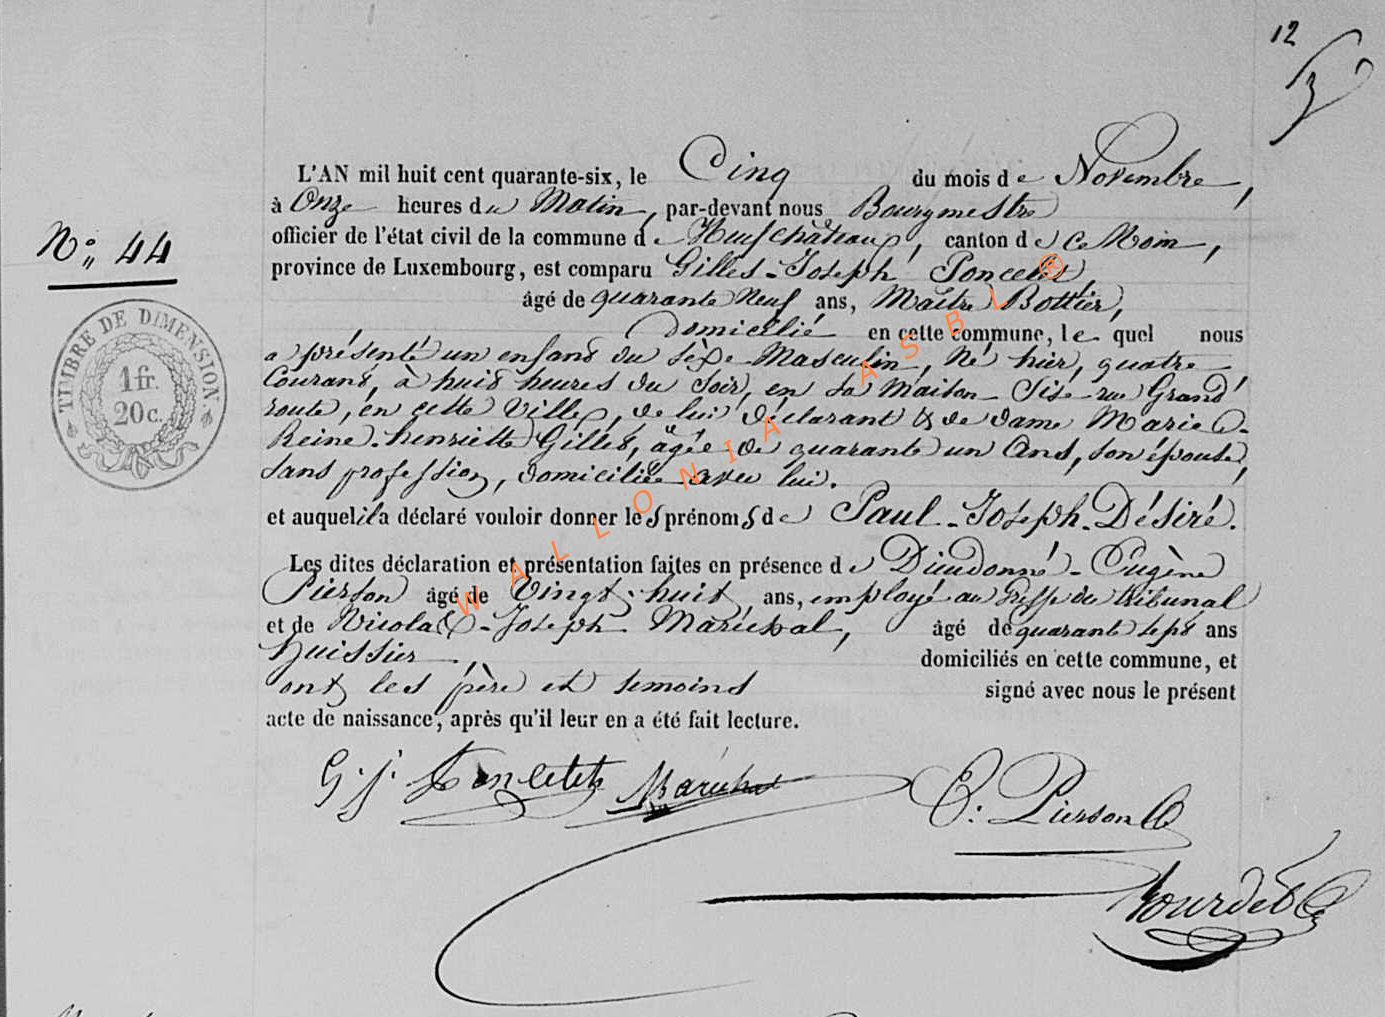 12
3
L'AN mil huit cent quarante-six, le Cinq du mois de Novembre,
à Onze heures du Matin, par-devant nous Bourgmestre
N° 44
officier de l'état civil de la commune de Neufchâteau, canton de ce Nom,
province de Luxembourg, est comparu Gilles-Joseph Poncelet,
âgé de quarante Neuf ans, Maître Bottier,
domicilié en cette commune, le quel nous
a présenté un enfant du sèxe Masculin, Né hier, quatre
Courant, à huit heures du soir, en sa maison sise rue Grand'
route, en cette Ville, de lui déclarant & de dame Marie-
Reine-henriette Gilles, âgée de quarante un ans, son épouse,
sans profession, domiciliée avec lui.
et auquel il a déclaré vouloir donner les prénoms de Paul-Joseph-Désiré.
Les dites déclaration et présentation faites en présence de Dieudonné-Eugène
Pierson âgé de Vingt-huit ans, employé au Greffe du tribunal
et de Nicolas-Joseph Maréchal, âgé de quarante sept ans
huissier, domiciliés en cette commune, et
ont les père et temoins signé avec nous le présent
acte de naissance, après qu'il leur en a été fait lecture.
G. J. Poncelet Maréchal E. Pierson
Bourdet
TIMBRE DE DIMENSION
1 fr.
20 c.
WALLONIA ASBL ®